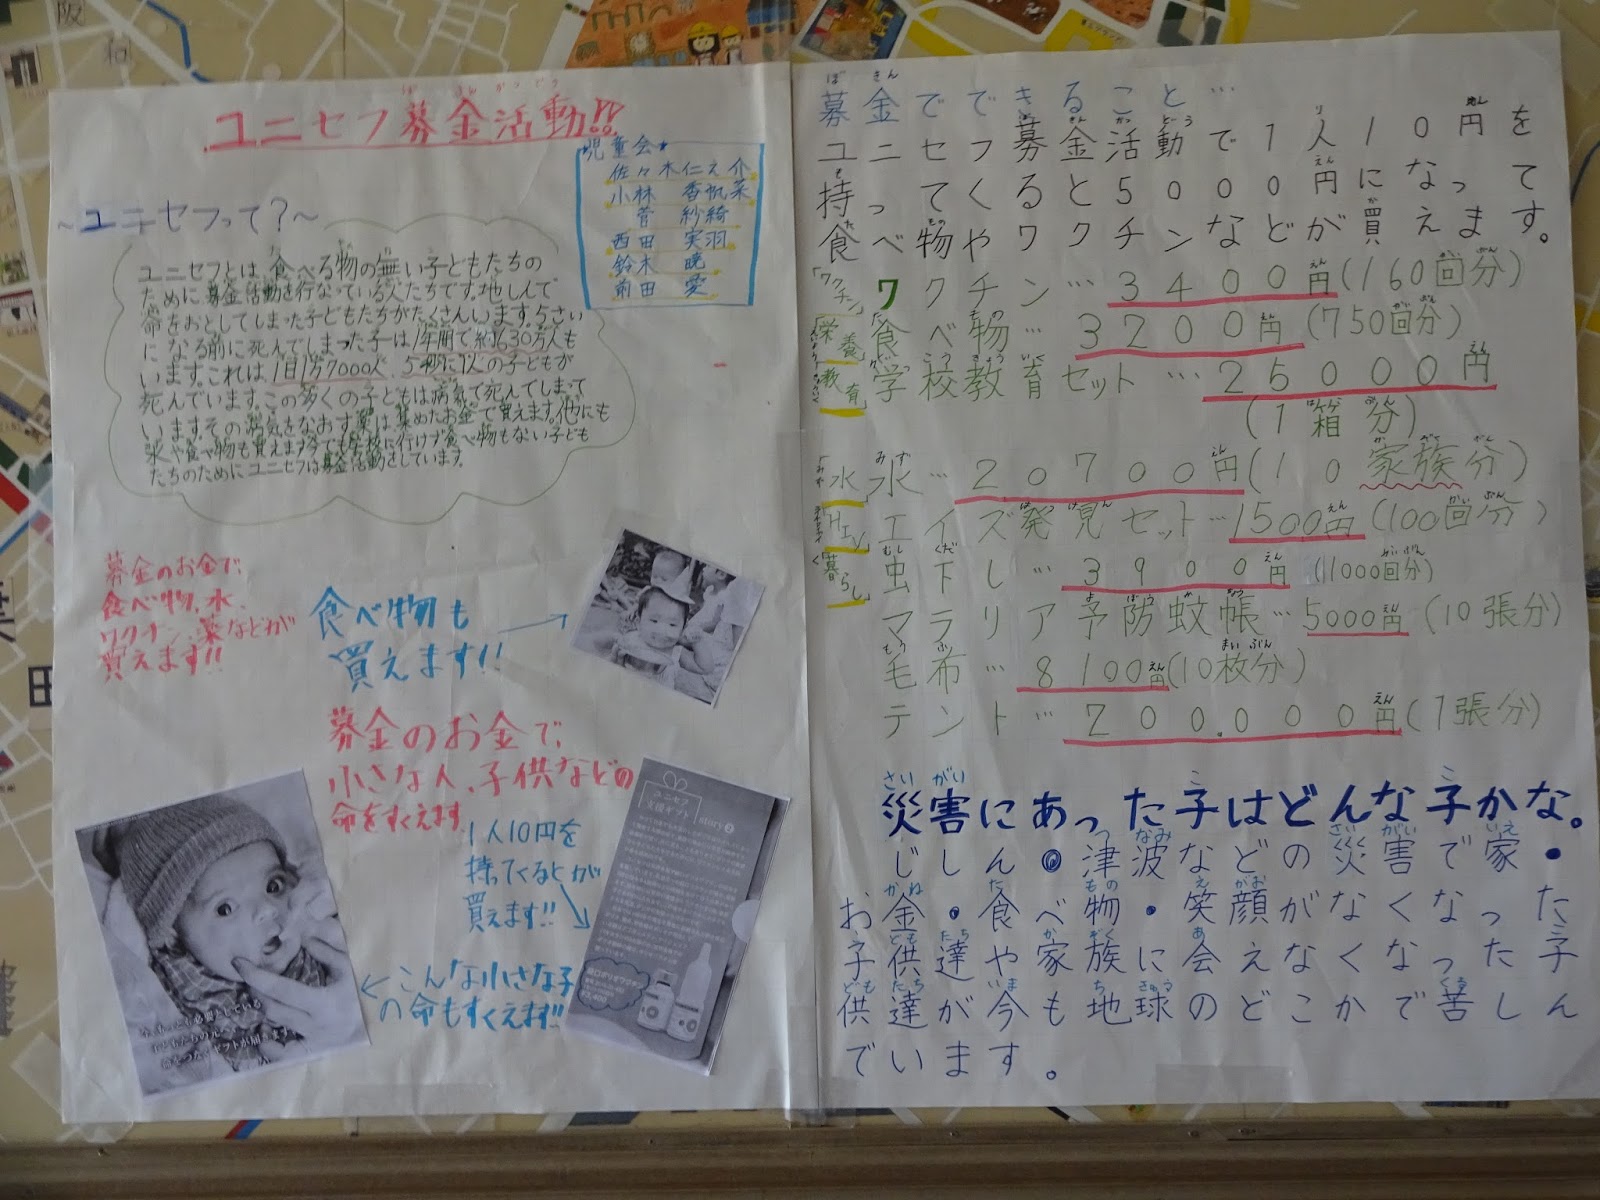 ユニセフ募金活動!!
児童会
小林 香帆菜
菅 紗綺
西田 実羽
鈴木 暁
前田 愛
~ユニセフって?~
ユニセフとは、食べる物の無い子どもたちの
ために募金活動を行なっている人たちです。地しんで
命をおとしてしまった子どもたちがたくさんいます。5さい
になる前に死んでしまった子は1年間で約630万人も
います。これは1日1万7000人、5秒に1人の子どもが
死んでいます。この多くの子どもは病気で死んでしまって
います。その病気をなおす薬は集めたお金で買えます。他にも
家や食べ物も買えます今でも学校に行けず食べ物もない子ども
たちのためにユニセフは募金活動をしています。
募金のお金で、
食べ物、水、
ワクチン、薬などが
買えます!!
食べ物も
買えます!!
募金のお金で、
小さな人、子供などの
命をすくえます。
1人10円を
持ってくるとが
買えます!!
こんな小さな子
の命もすくえます!!
ユニセフ
支援ギフト
story2
募金でできること…
ユニセフ募金活動で1人10円を
持ってくると5000円になって
食べ物やワクチンなどが買えます。
「ワクチン」ワクチン…3400円(160回分)
「栄養」食べ物…3200円(750回分)
「教育」学校教育セット…25000円
(1箱分)
「水」水…20700円(10家族分)
「HIV」エイズ発見セット…1500円(100回分)
「暮らし」虫下し…3900円(1000回分)
マラリア予防蚊帳…5000円(10張分)
毛布…8100円(10枚分)
テント…200.000円(1張分)
災害にあった子はどんな子かな。
じしん・津波などの災害で家・
お金・食べ物・笑顔がなくなった
子供達や家族に会えなくなった子
供達が今も地球のどこかで苦しん
でいます。